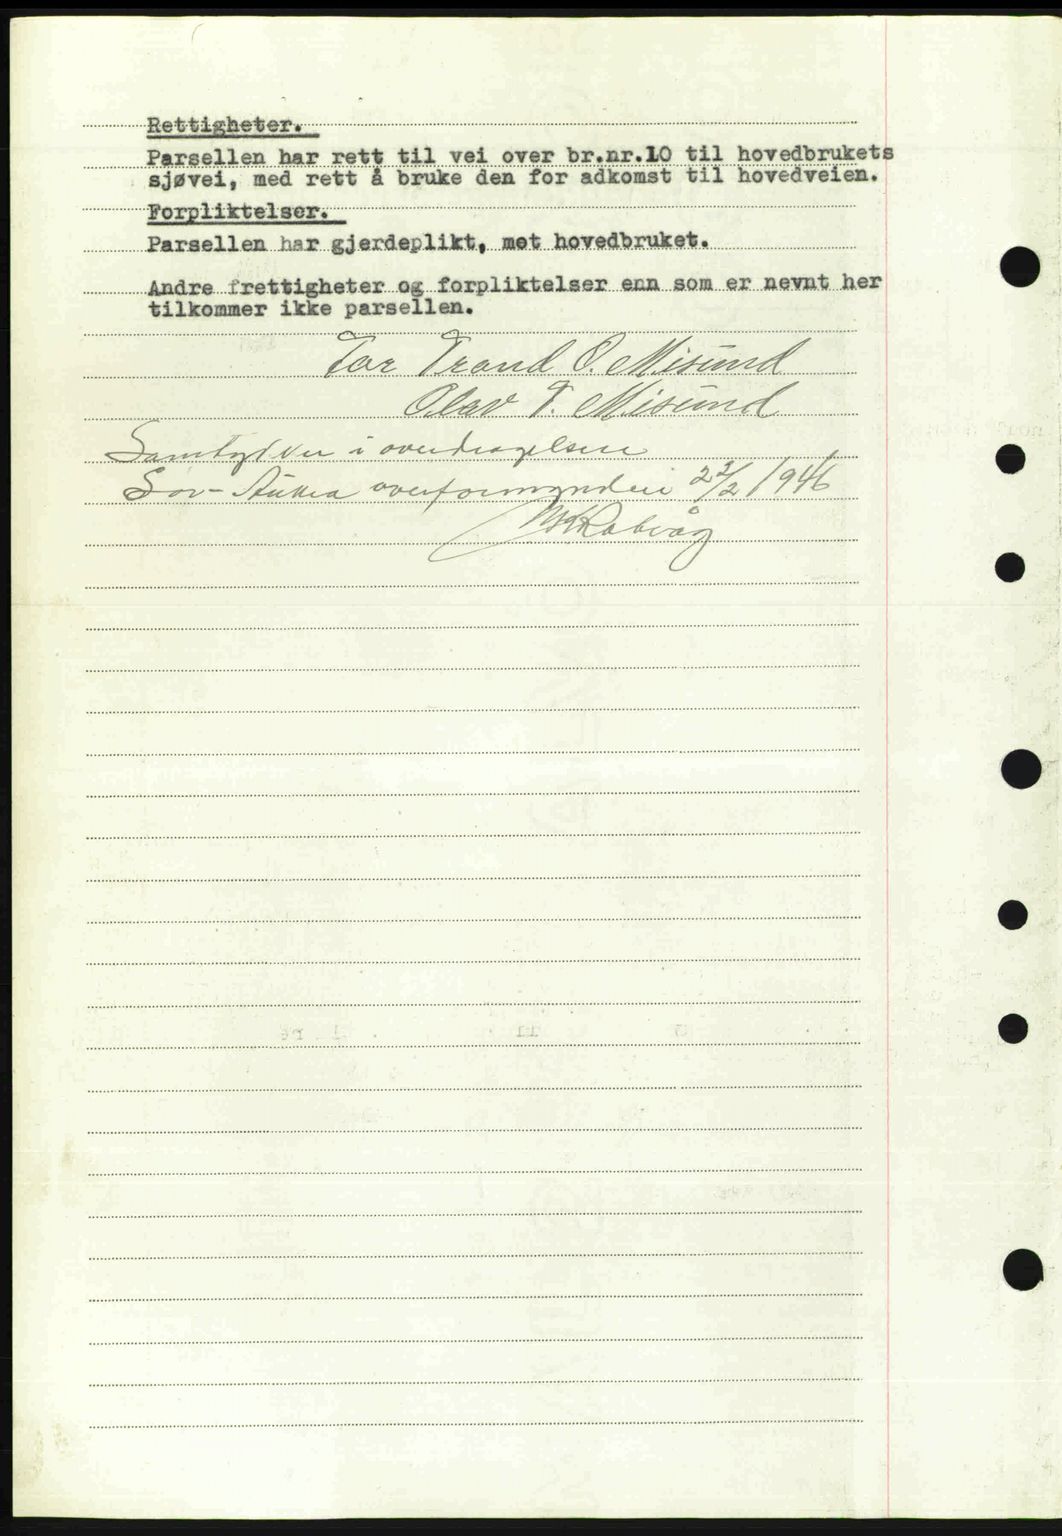 Rettigheter.
Parsellen har rett til vei over br.nr.10 til hovedbrukets
sjøvei, med rett å bruke den for adkomst til hovedveien.
Forpliktelser.
Parsellen har gjerdeplikt, mot hovedbruket.
Andre frettigheter og forpliktelser enn som er nevnt her
tilkommer ikke parsellen.
For Trond O. Misund
Olav T. Misund
Samtykker i overdragelsen
Sør-Aukra overformynderi 22/2 1946